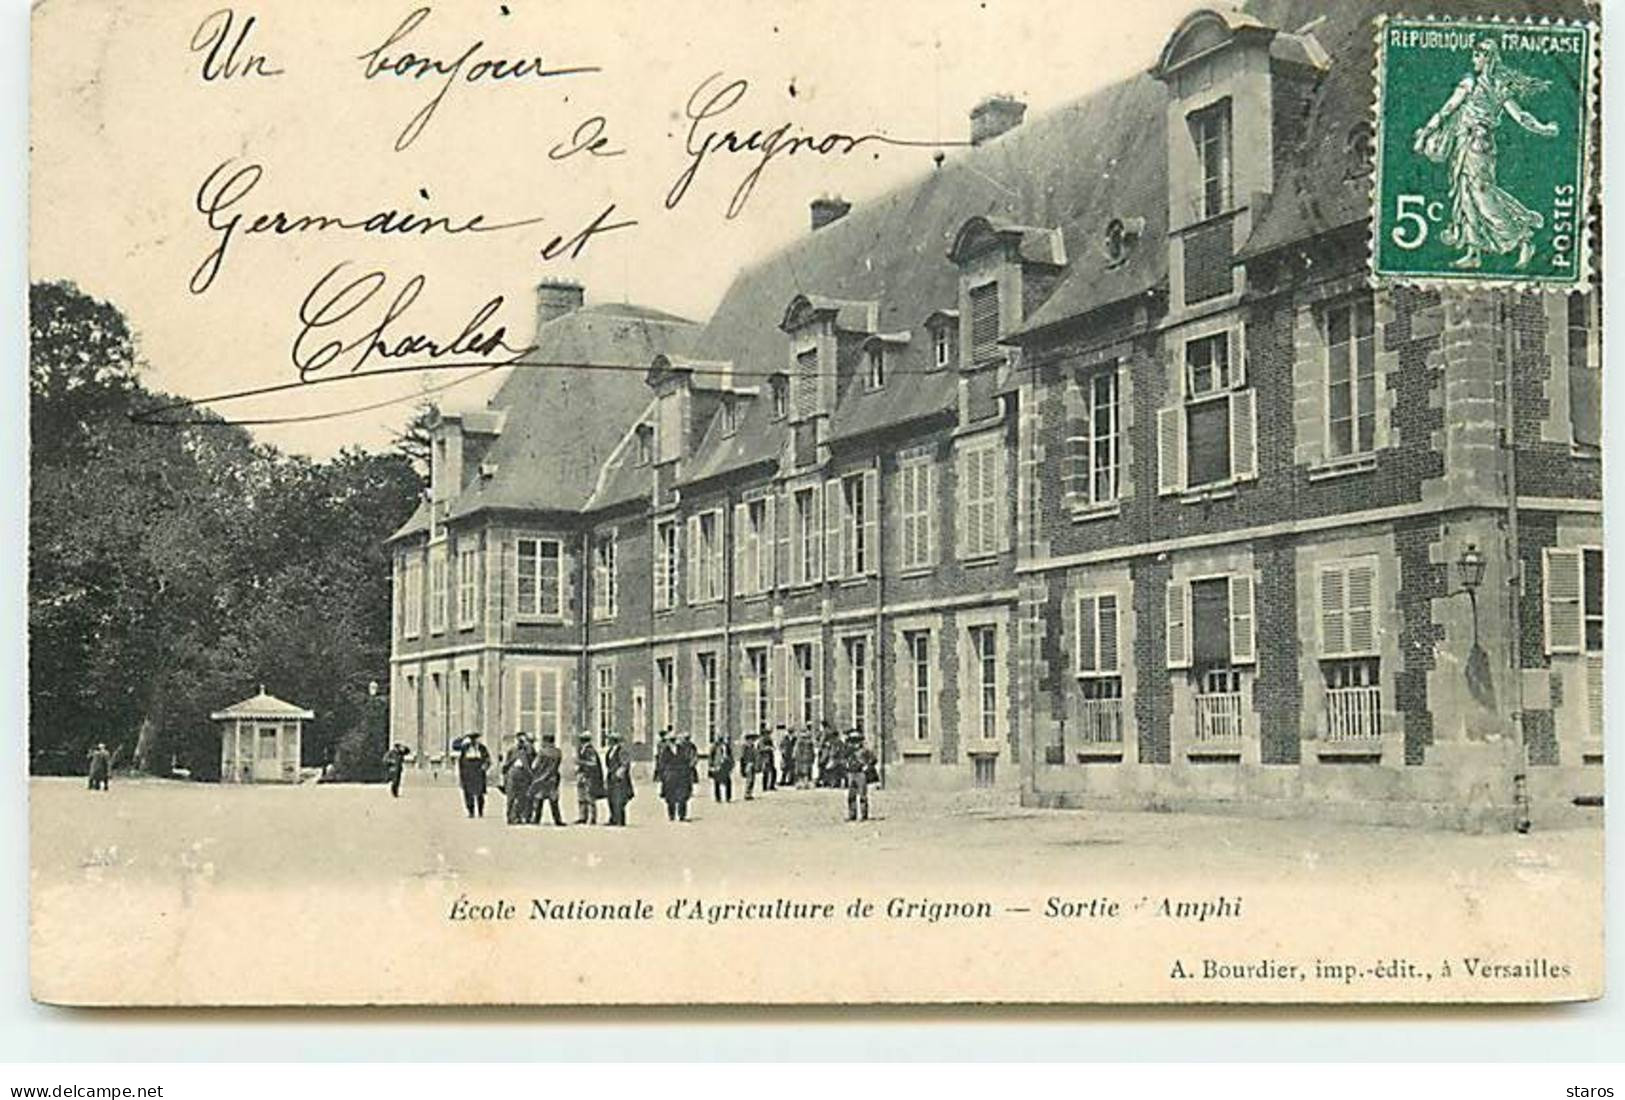 Un bonjour
de Grignon.
Germaine et
Charles
REPUBLIQUE FRANÇAISE
5c
POSTES
École Nationale d'Agriculture de Grignon — Sortie d'Amphi
A. Bourdier, imp.-édit., à Versailles
delcampe.net
staros